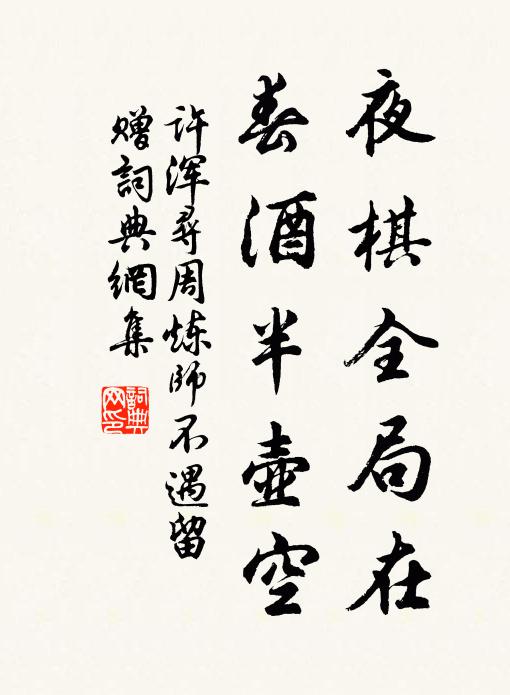 夜棋全局在
春酒半壺空
许浑尋周炼師不遇留
赠詞典網集
詞典网印